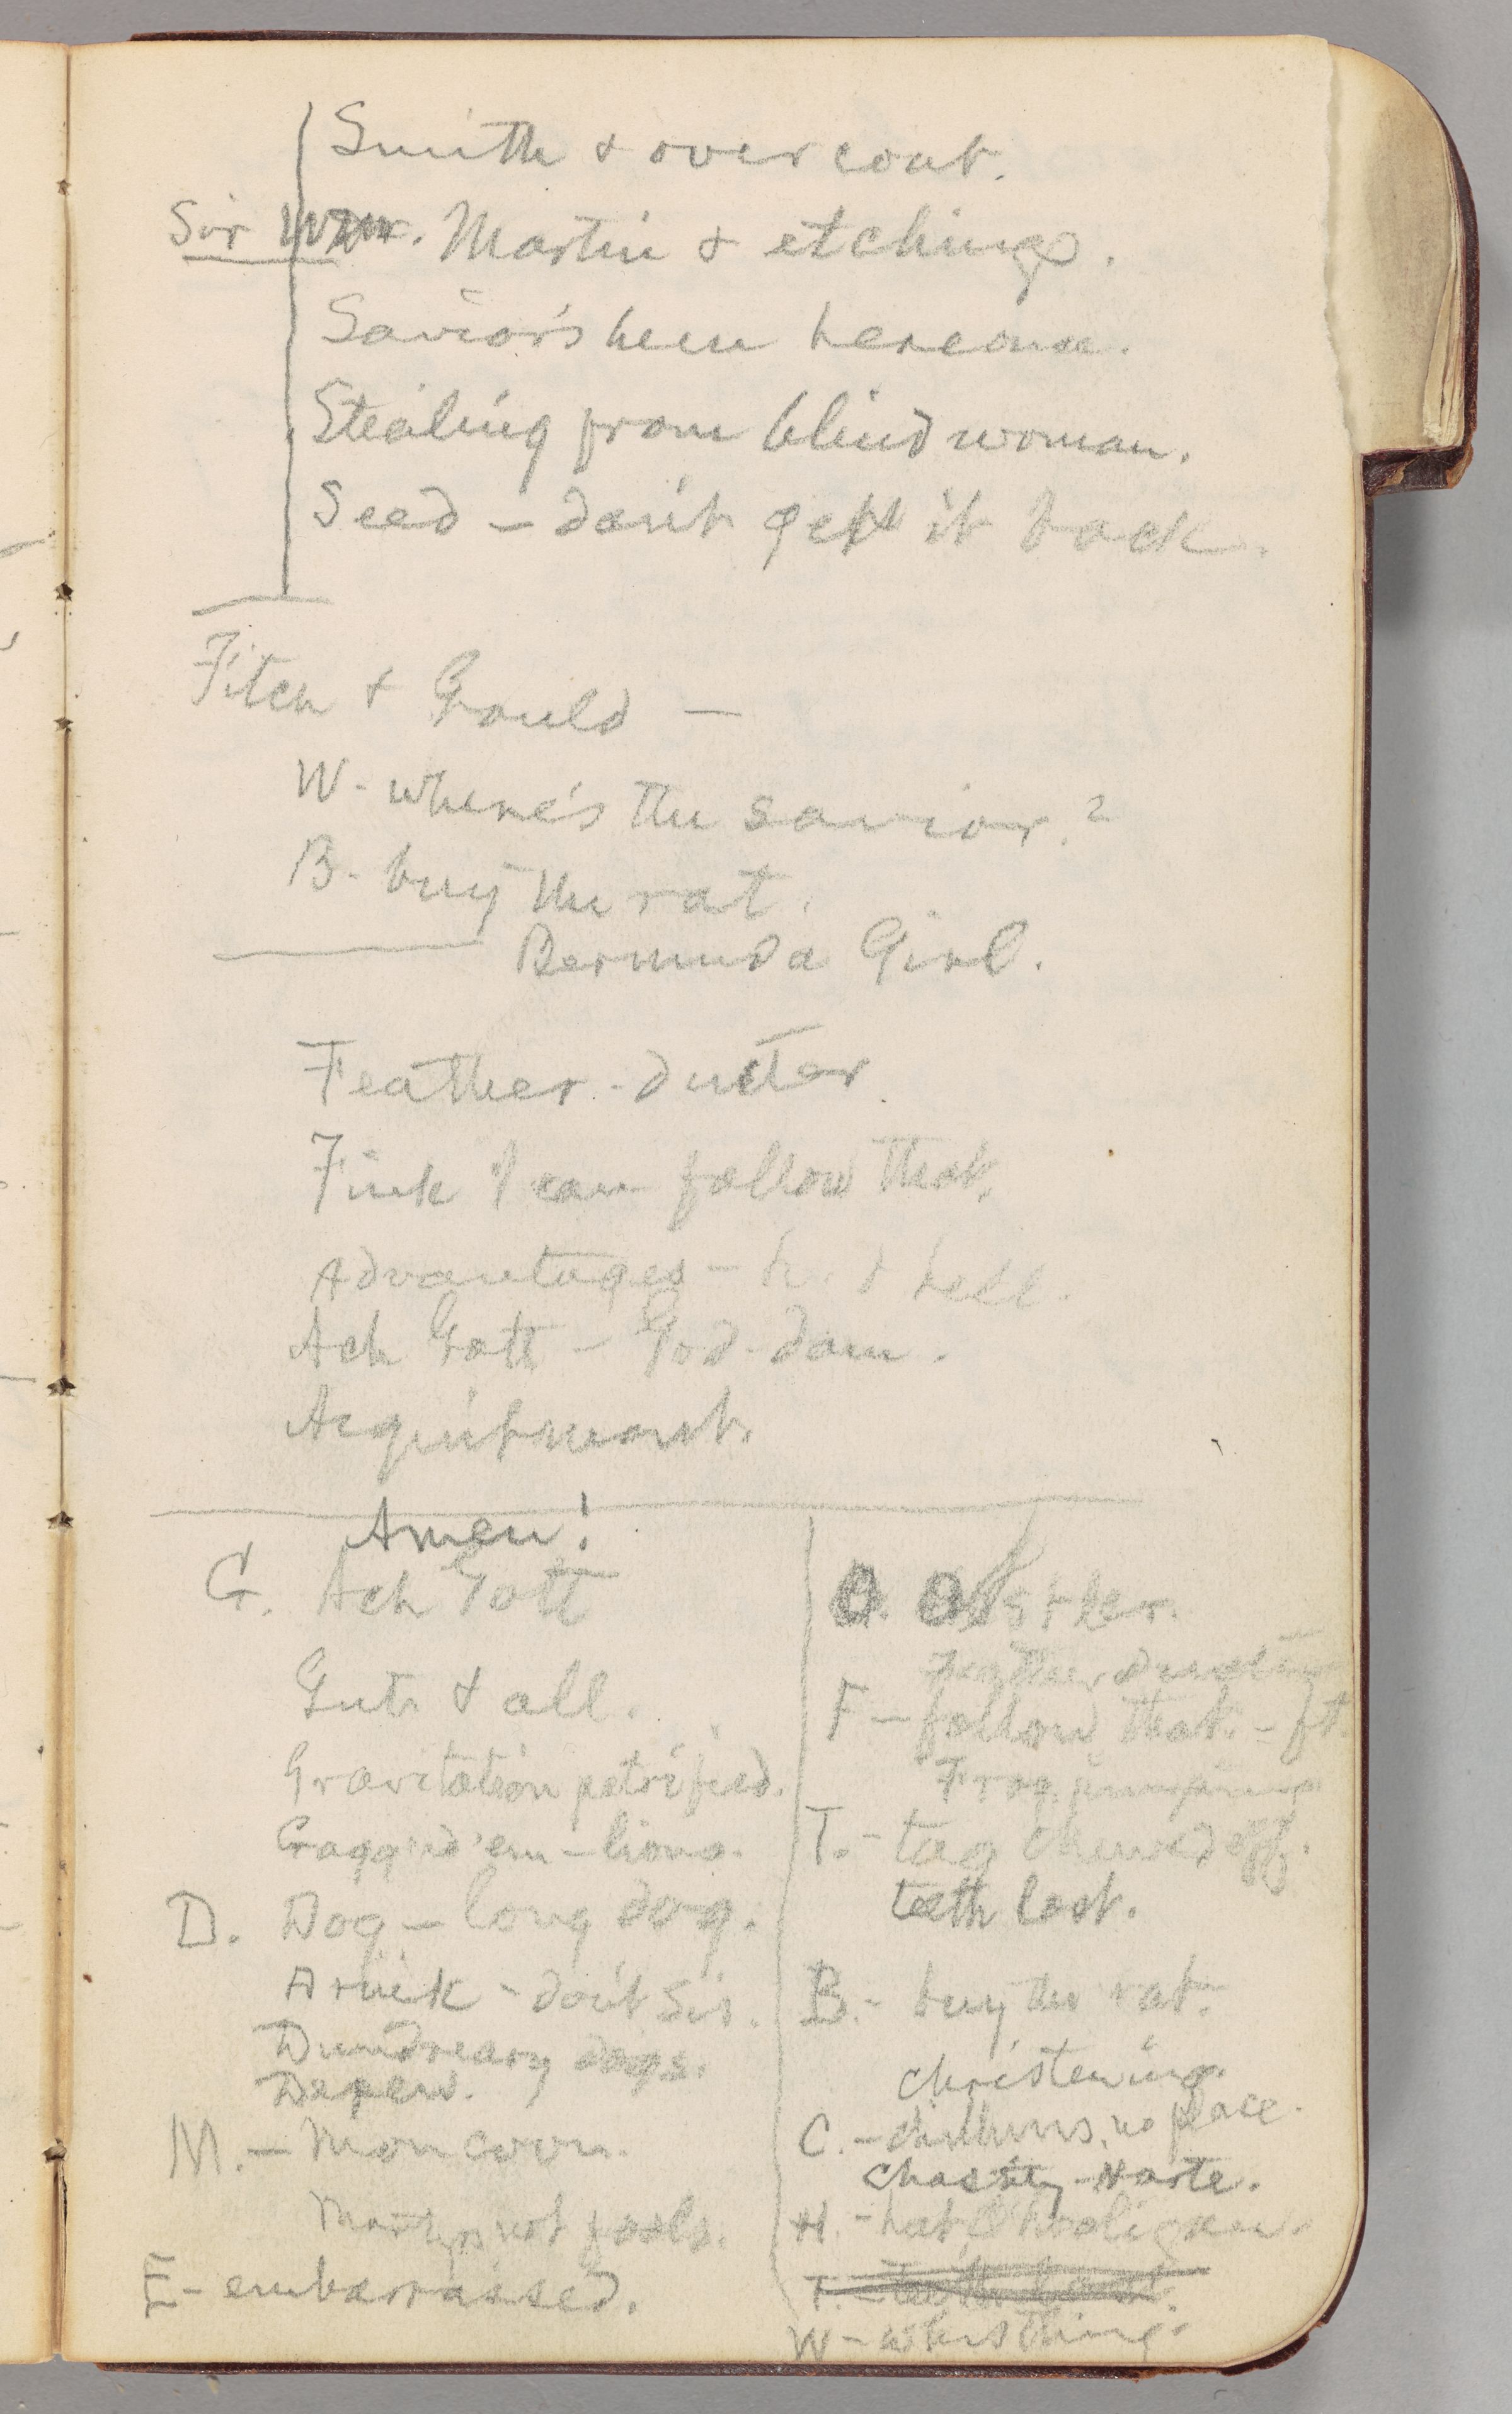 Smith & overcoat.
Sir Wm. Martin & etchings.
Savior's been here once.
Stealing from blind woman.
Seed – don't get it back.
Fitch & Gould –
W - where's the savior?
B - buy the rat.
Bermuda Girl.
Feather-duster
Fink I can follow that.
Advantages – h. & hell.
Ach Gott – God-dam.
Acquitment.
Amen!
G. Ach Gott
Guts & all.
Gravitation petrified.
Gagged 'em – lions.
D. Dog – long dog.
Drink – don't Sir.
Dundreary dogs.
M. – Moncoon.
Martyrs not fools.
E – embarrassed.
O.
Feather duster
F – follow that. – ft.
Frog jumping
T. – tag chewed off.
teeth lost.
B. – buy the rat.
christening.
C. – no place.
Chastity – Harte.
H. – hat hooligan.
T. – teeth lost.
W – whistling.